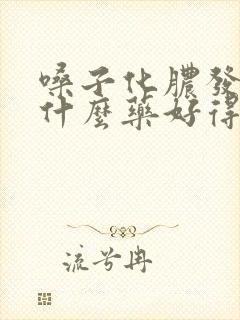 嗓子化膿發
什麼藥好得
流兮冉